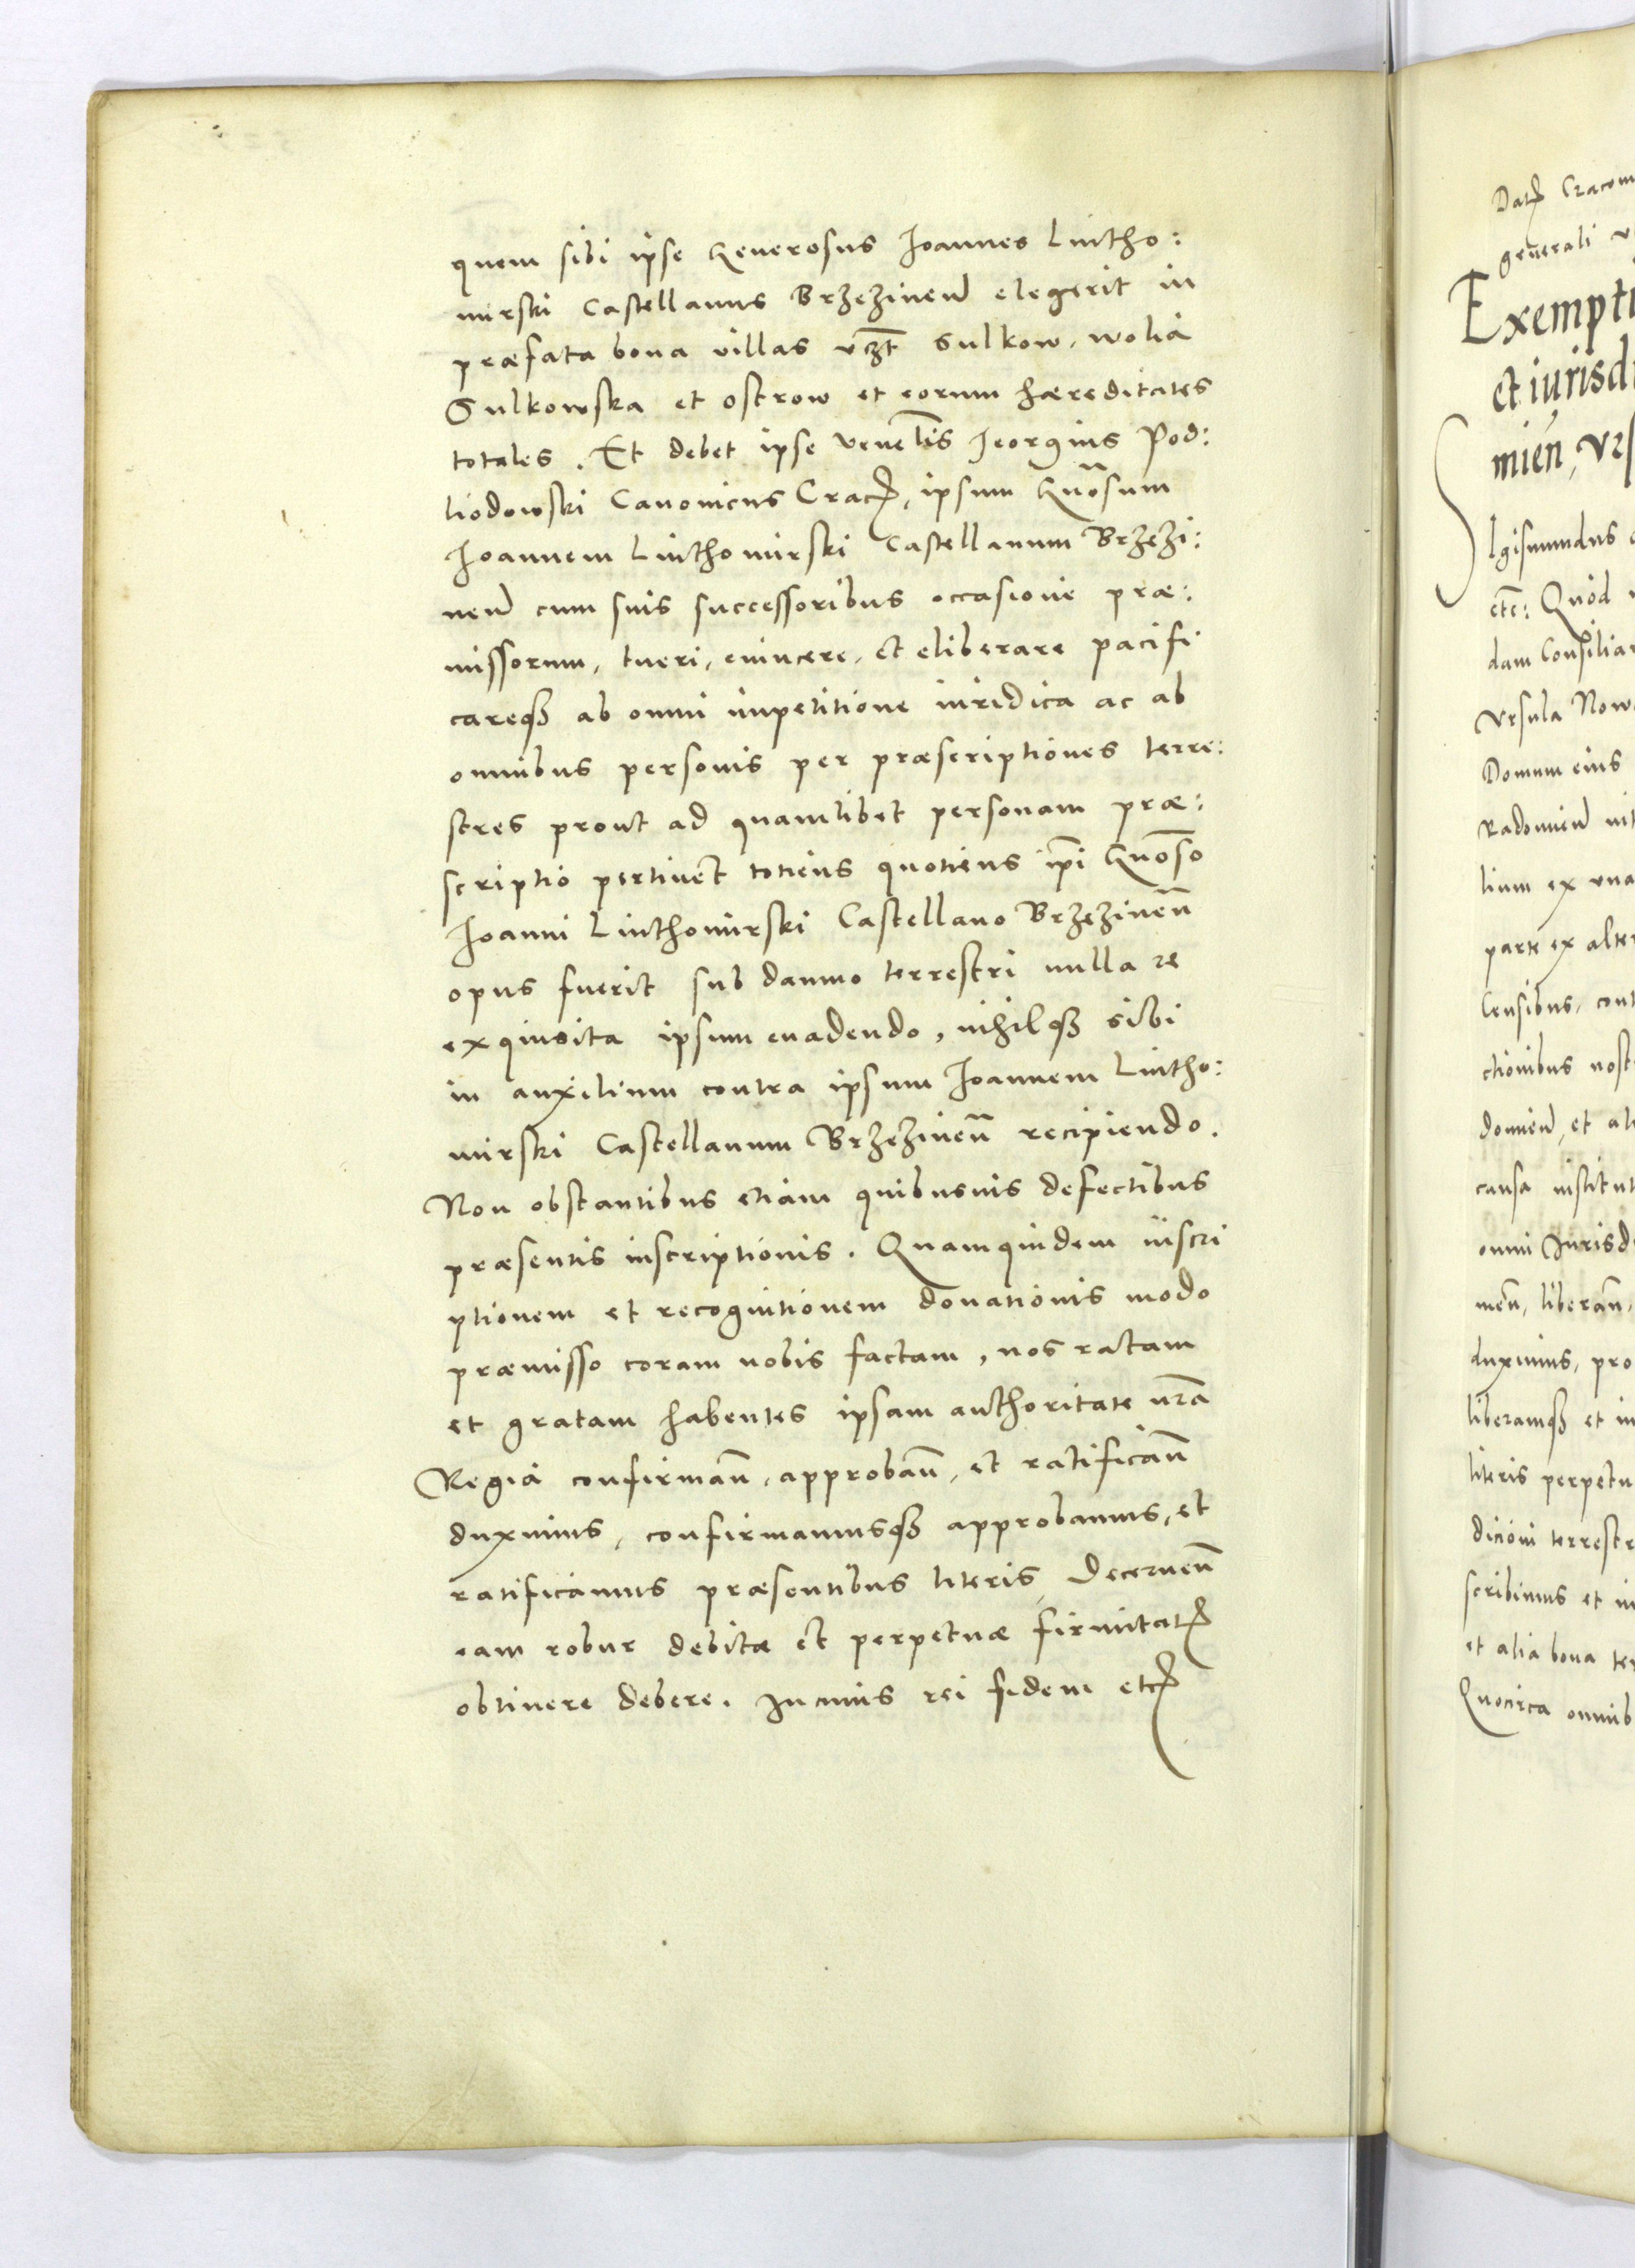 quem sibi ipse Generosus Joannes Lutho:
mirski Castellanus Brzezinen̄ elegerit in
præfata bona villas vczt Sulkow, wolia
Sulkowska et ostrow et eorum hæreditates
totales. Et debet ipse venel̄is Jeorgius Pod:
liodowski Canonicus Crac̄, ipsum Gn̄osum
Joannem Luthomirski Castellanum Brzezi:
nen̄ cum suis successoribus occasione præ:
missorum, tueri, euincere, et eliberare pacifi
careqꝫ ab omni impetitione iuridica ac ab
omnibus personis per præscriptiones terre:
stres prout ad quamlibet personam præ:
scriptio pertinet totiens quotiens ip̄i Gn̄oso
Joanni Luthomirski Castellano Brzezinen̄
opus fuerit sub damno terrestri nulla re
exquisita ipsum euadendo, nihilqꝫ sibi
in auxilium contra ipsum Joannem Lutho:
mirski Castellanum Brzezinen̄ recipiendo.
Non obstantibus etiam quibusuis defectibus
præsentis inscriptionis. Quamquidem iiscri
ptionem et recognitionem donationis modo
præmisso coram nobis factam, nos ratam
et gratam habentes ipsam authoritate nr̄a
Regia confirman̄, approban̄, et ratifican̄
duximus, confirmamusqꝫ approbamus, et
ratificamus præsentibus literis, Decernen̄
eam robur debitæ et perpetuæ firmitat̄
obtinere debere. In cuius rei fidem etc̄
Dat̄ Cracou
generali
Exempti
et iurisdi
mien̄, vrs
Sigismundus
etc: Quod
dam Consiliar
Vrsula Now
Domum eius
Radomien̄
lium ex vna
parte ex alter
Censibus, cont
ctionibus nost
domien̄, et ali
causa institut
omni Jurisd
men̄, liberan̄,
duximus, pro
liberamqꝫ et in
literis perpetu
dicioni terrestr
scribimus et in
et alia bona ter
Quocirca omnib